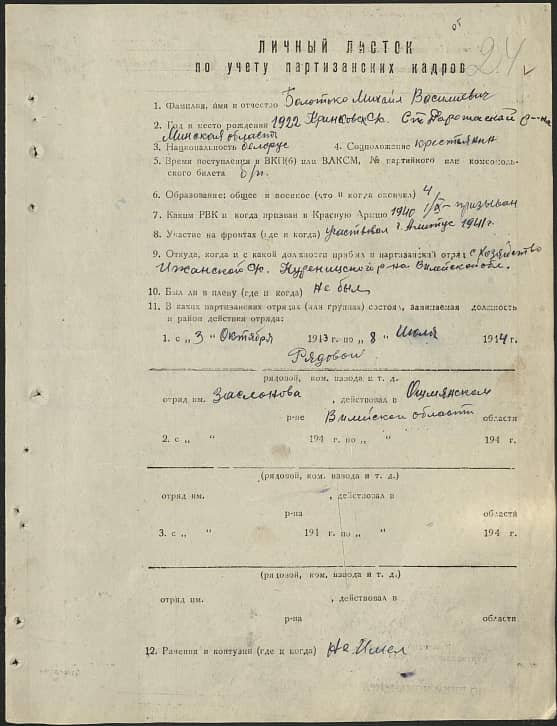 об
24
ЛИЧНЫЙ ЛИСТОК
по учету партизанских кадров
1. Фамилия, имя и отчество Болотько Михаил Васильевич
2. Год и место рождения 1922 Криковск. Ст. Дорожской р-на
Минской области
3. Национальность белорус 4. Соцположение крестьянин
5. Время поступления в ВКП(б) или ВЛКСМ, № партийного или комсомоль-
ского билета б/п.
6. Образование: общее и военное (что и когда окончил) 4
7. Каким РВК и когда призван в Красную Армию 1940 1/IX - призыван
8. Участие на фронтах (где и когда) участвовал г. Алитус 1941г.
9. Откуда, когда и с какой должности прибыл в партизанский отряд с хозяйство
Ижанской Куреницкой р-на Вилейской обл.
10. Был ли в плену (где и когда) Не был
11. В каких партизанских отрядах (или группах) состоял, занимаемая должность
и район действия отряда:
1. с „ 3 " Октября 1943 г. по „ 8 " Июля 1944 г.
Рядовой
(рядовой, ком. взвода и т. д.)
отряд им. Заслонова, действовал в Ошмянском
р-не Вилейской области области
2. с „ " 194 г. по „ " 194 г.
(рядовой, ком. взвода и т. д.)
отряд им. , действовал в
р-на области
3. с „ " 194 г. по „ " 194 г.
(рядовой, ком. взвода и т. д.)
отряд им. , действовал в
р-на области
12. Ранения и контузии (где и когда) Не Имел